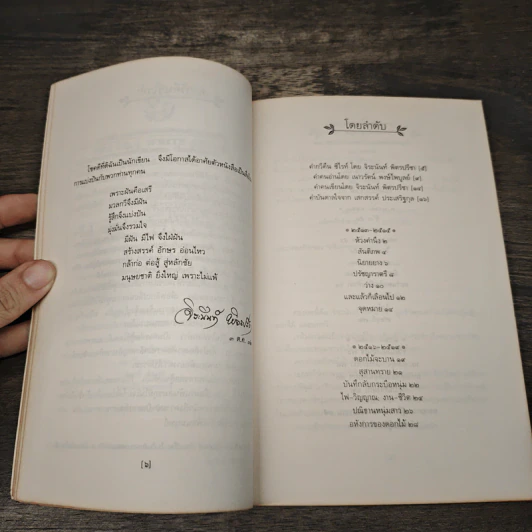 โชคดีที่ดิฉันเป็นนักเขียน จึงมีโอกาสได้อาศัยตัวหนังสือเป็น
การแบ่งปันกับพวกท่านทุกคน
เพราะฝันคือเสรี
มวลกวีจึงมีฝัน
รู้สึกจึงแบ่งปัน
มุ่งมั่นจึงรวมใจ
มีฝัน มีไฟ จึงใฝ่ฝัน
สร้างสรรค์ อักษร อ่อนไหว
กล้าก่อ ต่อสู้ สู่หลักชัย
มนุษยชาติ ยิ่งใหญ่ เพราะไม่แพ้
๓ ต.ค.
[๖]
โดยลำดับ
คำกวีคืน ชีไรท์ โดย จิระนันท์ พิตรปรีชา [๕]
คำคนอ่านโดย เนาวรัตน์ พงษ์ไพบูลย์ [๗]
คำคนเขียนโดย จิระนันท์ พิตรปรีชา
คำบันดาลใจจาก เสกสรรค์ ประเสริฐกุล
๒๕๑๓-๒๕๑๕
ห้วงคำนึง ๒
ลันติภาพ ๔
นิยายยาง ๖
ปรัชญาราตรี ๘
ว่าง ๑๐
และแล้วก็เลื่อนไป ๑๒
จุดหมาย ๑๔
๒๕๑๖-๒๕๑๘
ดอกไม้จะบาน ๑๙
สุสานทราย ๒๑
บันทึกลับกระบือหนุ่ม ๒๒
ไฟ-วิญญาณ, งาน-ชีวิต ๒๕
ปณิธานหนุ่มสาว ๒๖
อหังการของดอกไม้ ๒๘